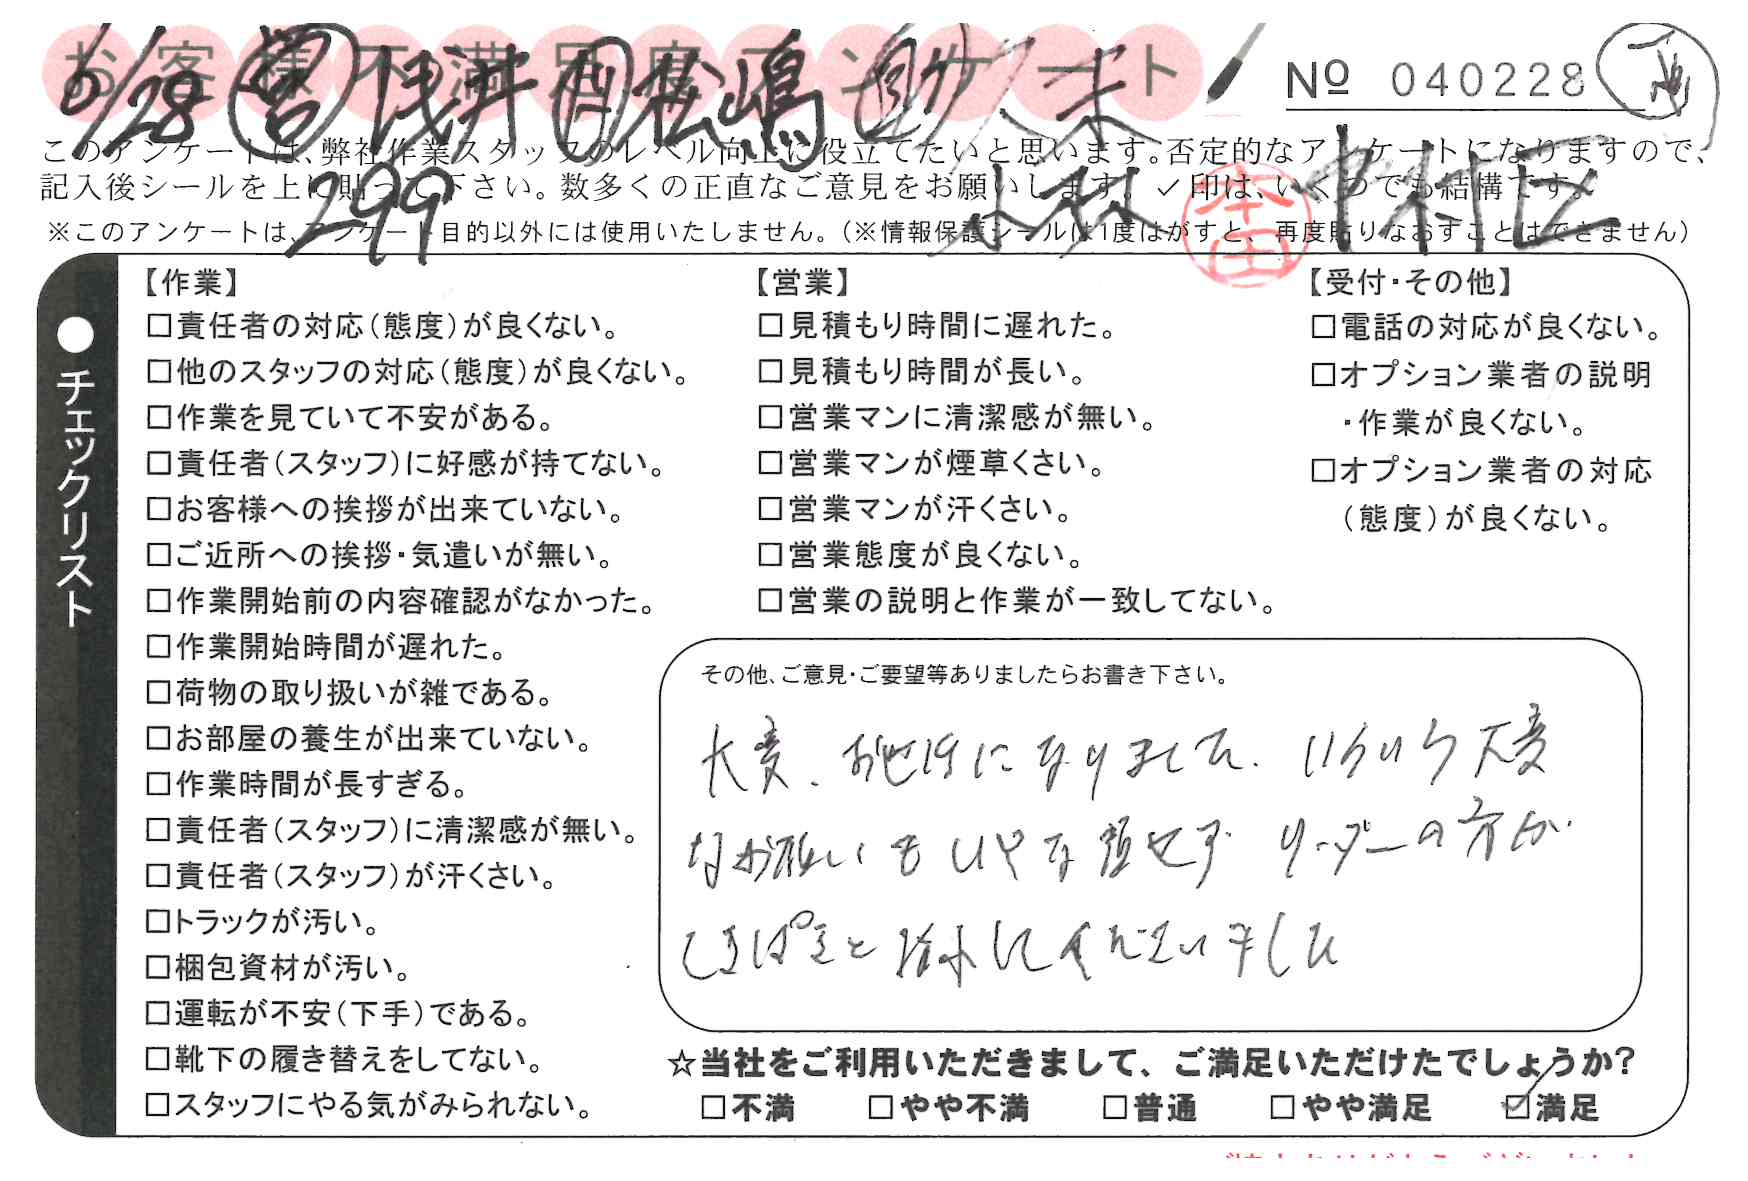 お客様不満足度アンケート
№ 040228
6/28 営 浅井 作 松嶋 助 久末
299 小林 本田 中村匠
このアンケートは、弊社作業スタッフのレベル向上に役立てたいと思います。否定的なアンケートになりますので、
記入後シールを上に貼って下さい。数多くの正直なご意見をお願いします。✓印は、いくつでも結構です。
※このアンケートは、アンケート目的以外には使用いたしません。(※情報保護シールは1度はがすと、再度貼りなおすことはできません)
●チェックリスト
【作業】
□責任者の対応(態度)が良くない。
□他のスタッフの対応(態度)が良くない。
□作業を見ていて不安がある。
□責任者(スタッフ)に好感が持てない。
□お客様への挨拶が出来ていない。
□ご近所への挨拶・気遣いが無い。
□作業開始前の内容確認がなかった。
□作業開始時間が遅れた。
□荷物の取り扱いが雑である。
□お部屋の養生が出来ていない。
□作業時間が長すぎる。
□責任者(スタッフ)に清潔感が無い。
□責任者(スタッフ)が汗くさい。
□トラックが汚い。
□梱包資材が汚い。
□運転が不安(下手)である。
□靴下の履き替えをしてない。
□スタッフにやる気がみられない。
【営業】
□見積もり時間に遅れた。
□見積もり時間が長い。
□営業マンに清潔感が無い。
□営業マンが煙草くさい。
□営業マンが汗くさい。
□営業態度が良くない。
□営業の説明と作業が一致してない。
【受付・その他】
□電話の対応が良くない。
□オプション業者の説明
・作業が良くない。
□オプション業者の対応
(態度)が良くない。
その他、ご意見・ご要望等ありましたらお書き下さい。
大変、お世話になりました。いろいろ大変
なお願いもいやな顔せず リーダーの方が
てきぱきと 指示してくださいました
☆当社をご利用いただきまして、ご満足いただけたでしょうか?
□不満 □やや不満 □普通 □やや満足 ☑満足